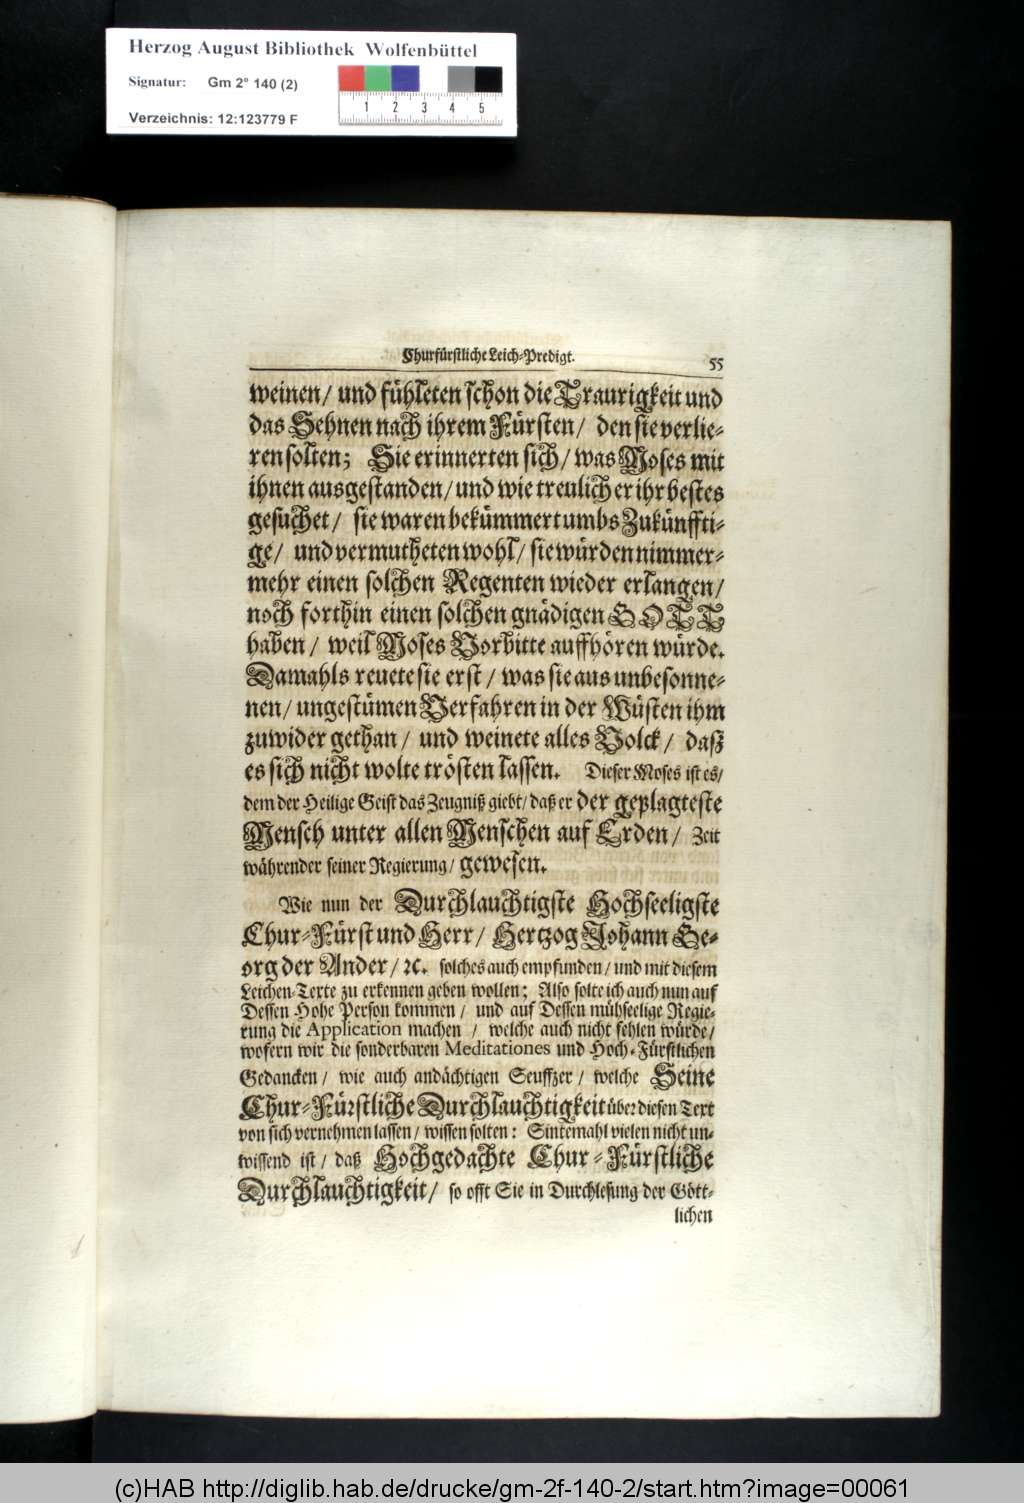 Herzog August Bibliothek Wolfenbüttel
Signatur: Gm 2° 140 (2)
1 2 3 4 5
Verzeichnis: 12:123779 F
Churfürstliche Leich-Predigt. 55
weinen / und fühleten schon die Traurigkeit und
das Sehnen nach ihrem Fürsten / den sie verlie-
ren solten; Sie erinnerten sich / was Moses mit
ihnen ausgestanden / und wie treulich er ihr bestes
gesuchet / sie waren bekümmert umbs Zukünffti-
ge / und vermutheten wohl / sie würden nimmer-
mehr einen solchen Regenten wieder erlangen /
noch forthin einen solchen gnädigen GOTT
haben / weil Moses Vorbitte auffhören würde.
Damahls reuete sie erst / was sie aus unbesonne-
nen / ungestümen Verfahren in der Wüsten ihm
zuwider gethan / und weinete alles Volck / daß
es sich nicht wolte trösten lassen. Dieser Moses ist es /
dem der Heilige Geist das Zeugniß giebt / daß er der geplagteste
Mensch unter allen Menschen auf Erden / Zeit
währender seiner Regierung / gewesen.
Wie nun der Durchlauchtigste Hochseeligste
Chur-Fürst und Herr / Hertzog Johann Ge-
org der Ander / ꝛc. solches auch empfunden / und mit diesem
Leichen-Texte zu erkennen geben wollen; Also solte ich auch nun auf
Dessen Hohe Person kommen / und auf Dessen mühseelige Regie-
rung die Application machen / welche auch nicht fehlen würde /
wofern wir die sonderbaren Meditationes und Hoch-Fürstlichen
Gedancken / wie auch andächtigen Seuffzer / welche Seine
Chur-Fürstliche Durchlauchtigkeit über diesen Text
von sich vernehmen lassen / wissen solten: Sintemahl vielen nicht un-
wissend ist / daß Hochgedachte Chur-Fürstliche
Durchlauchtigkeit / so offt Sie in Durchlesung der Gött-
lichen
(c)HAB http://diglib.hab.de/drucke/gm-2f-140-2/start.htm?image=00061